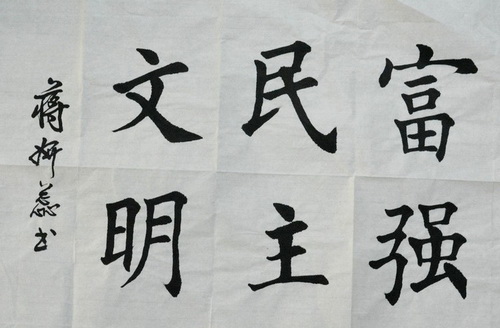 富强
民主
文明
蒋妍蕊书